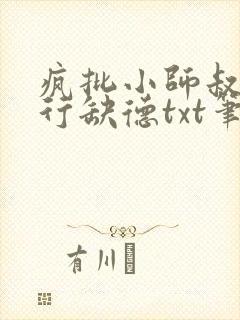 疯批小师叔
行缺德txt笔
有川